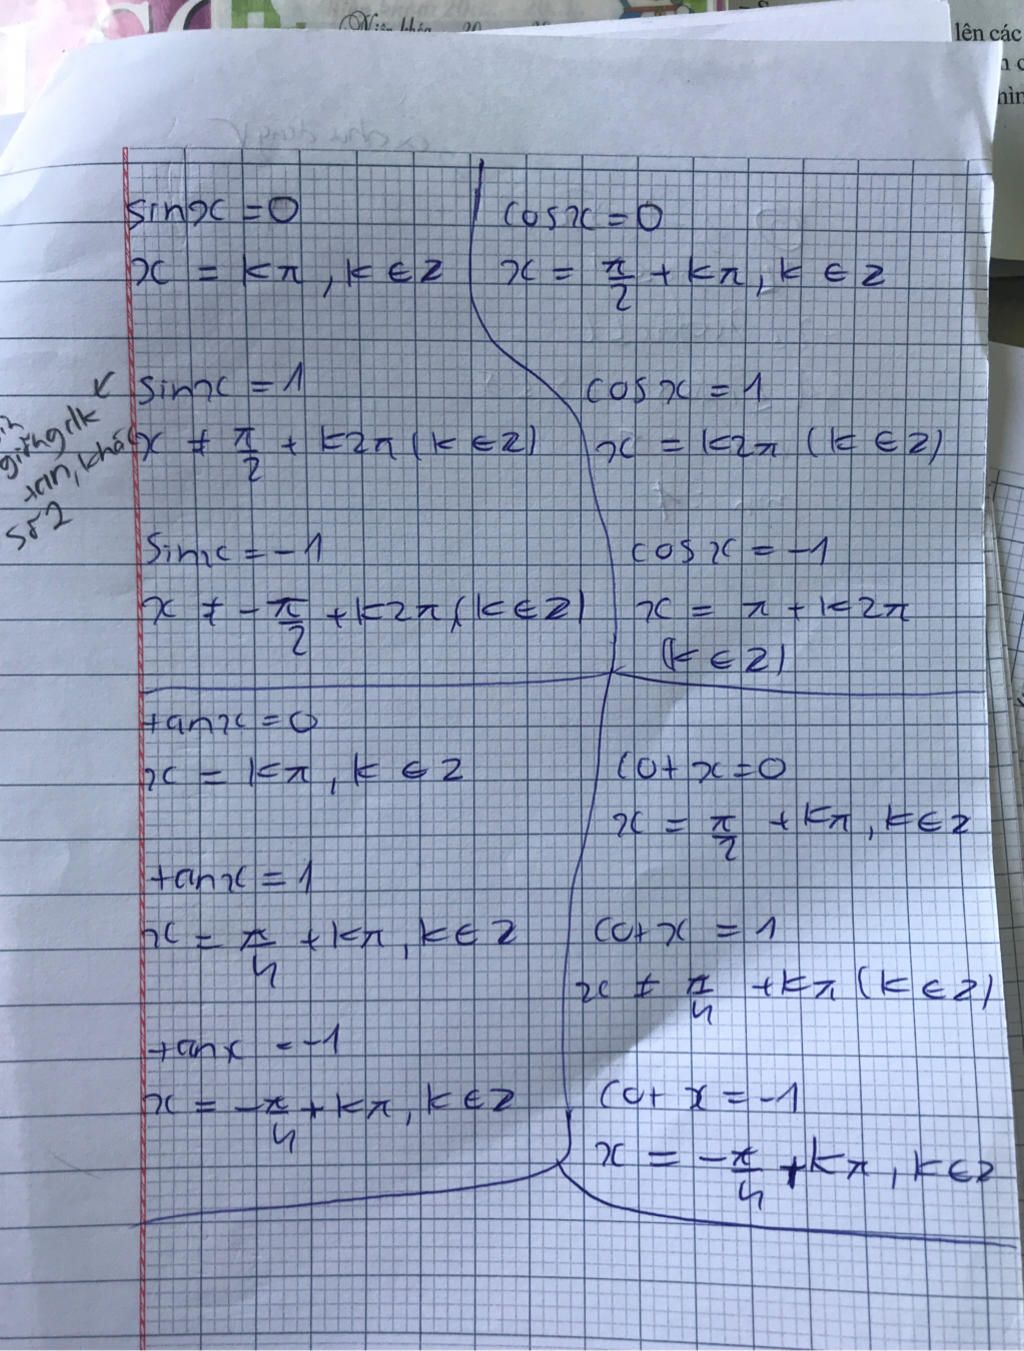 Niên khóa 20
lên các
sin x = 0
x = kπ, k ∈ Z
sin x = 1
x ≠ π/2 + k2π (k ∈ Z)
giống đk
tan, khác
số 2
sin x = -1
x ≠ -π/2 + k2π (k ∈ Z)
cos x = 0
x = π/2 + kπ, k ∈ Z
cos x = 1
x = k2π (k ∈ Z)
cos x = -1
x = π + k2π
(k ∈ Z)
tan x = 0
x = kπ, k ∈ Z
tan x = 1
x = π/4 + kπ, k ∈ Z
tan x = -1
x = -π/4 + kπ, k ∈ Z
cot x = 0
x = π/2 + kπ, k ∈ Z
cot x = 1
x ≠ π/4 + kπ (k ∈ Z)
cot x = -1
x = -π/4 + kπ, k ∈ Z